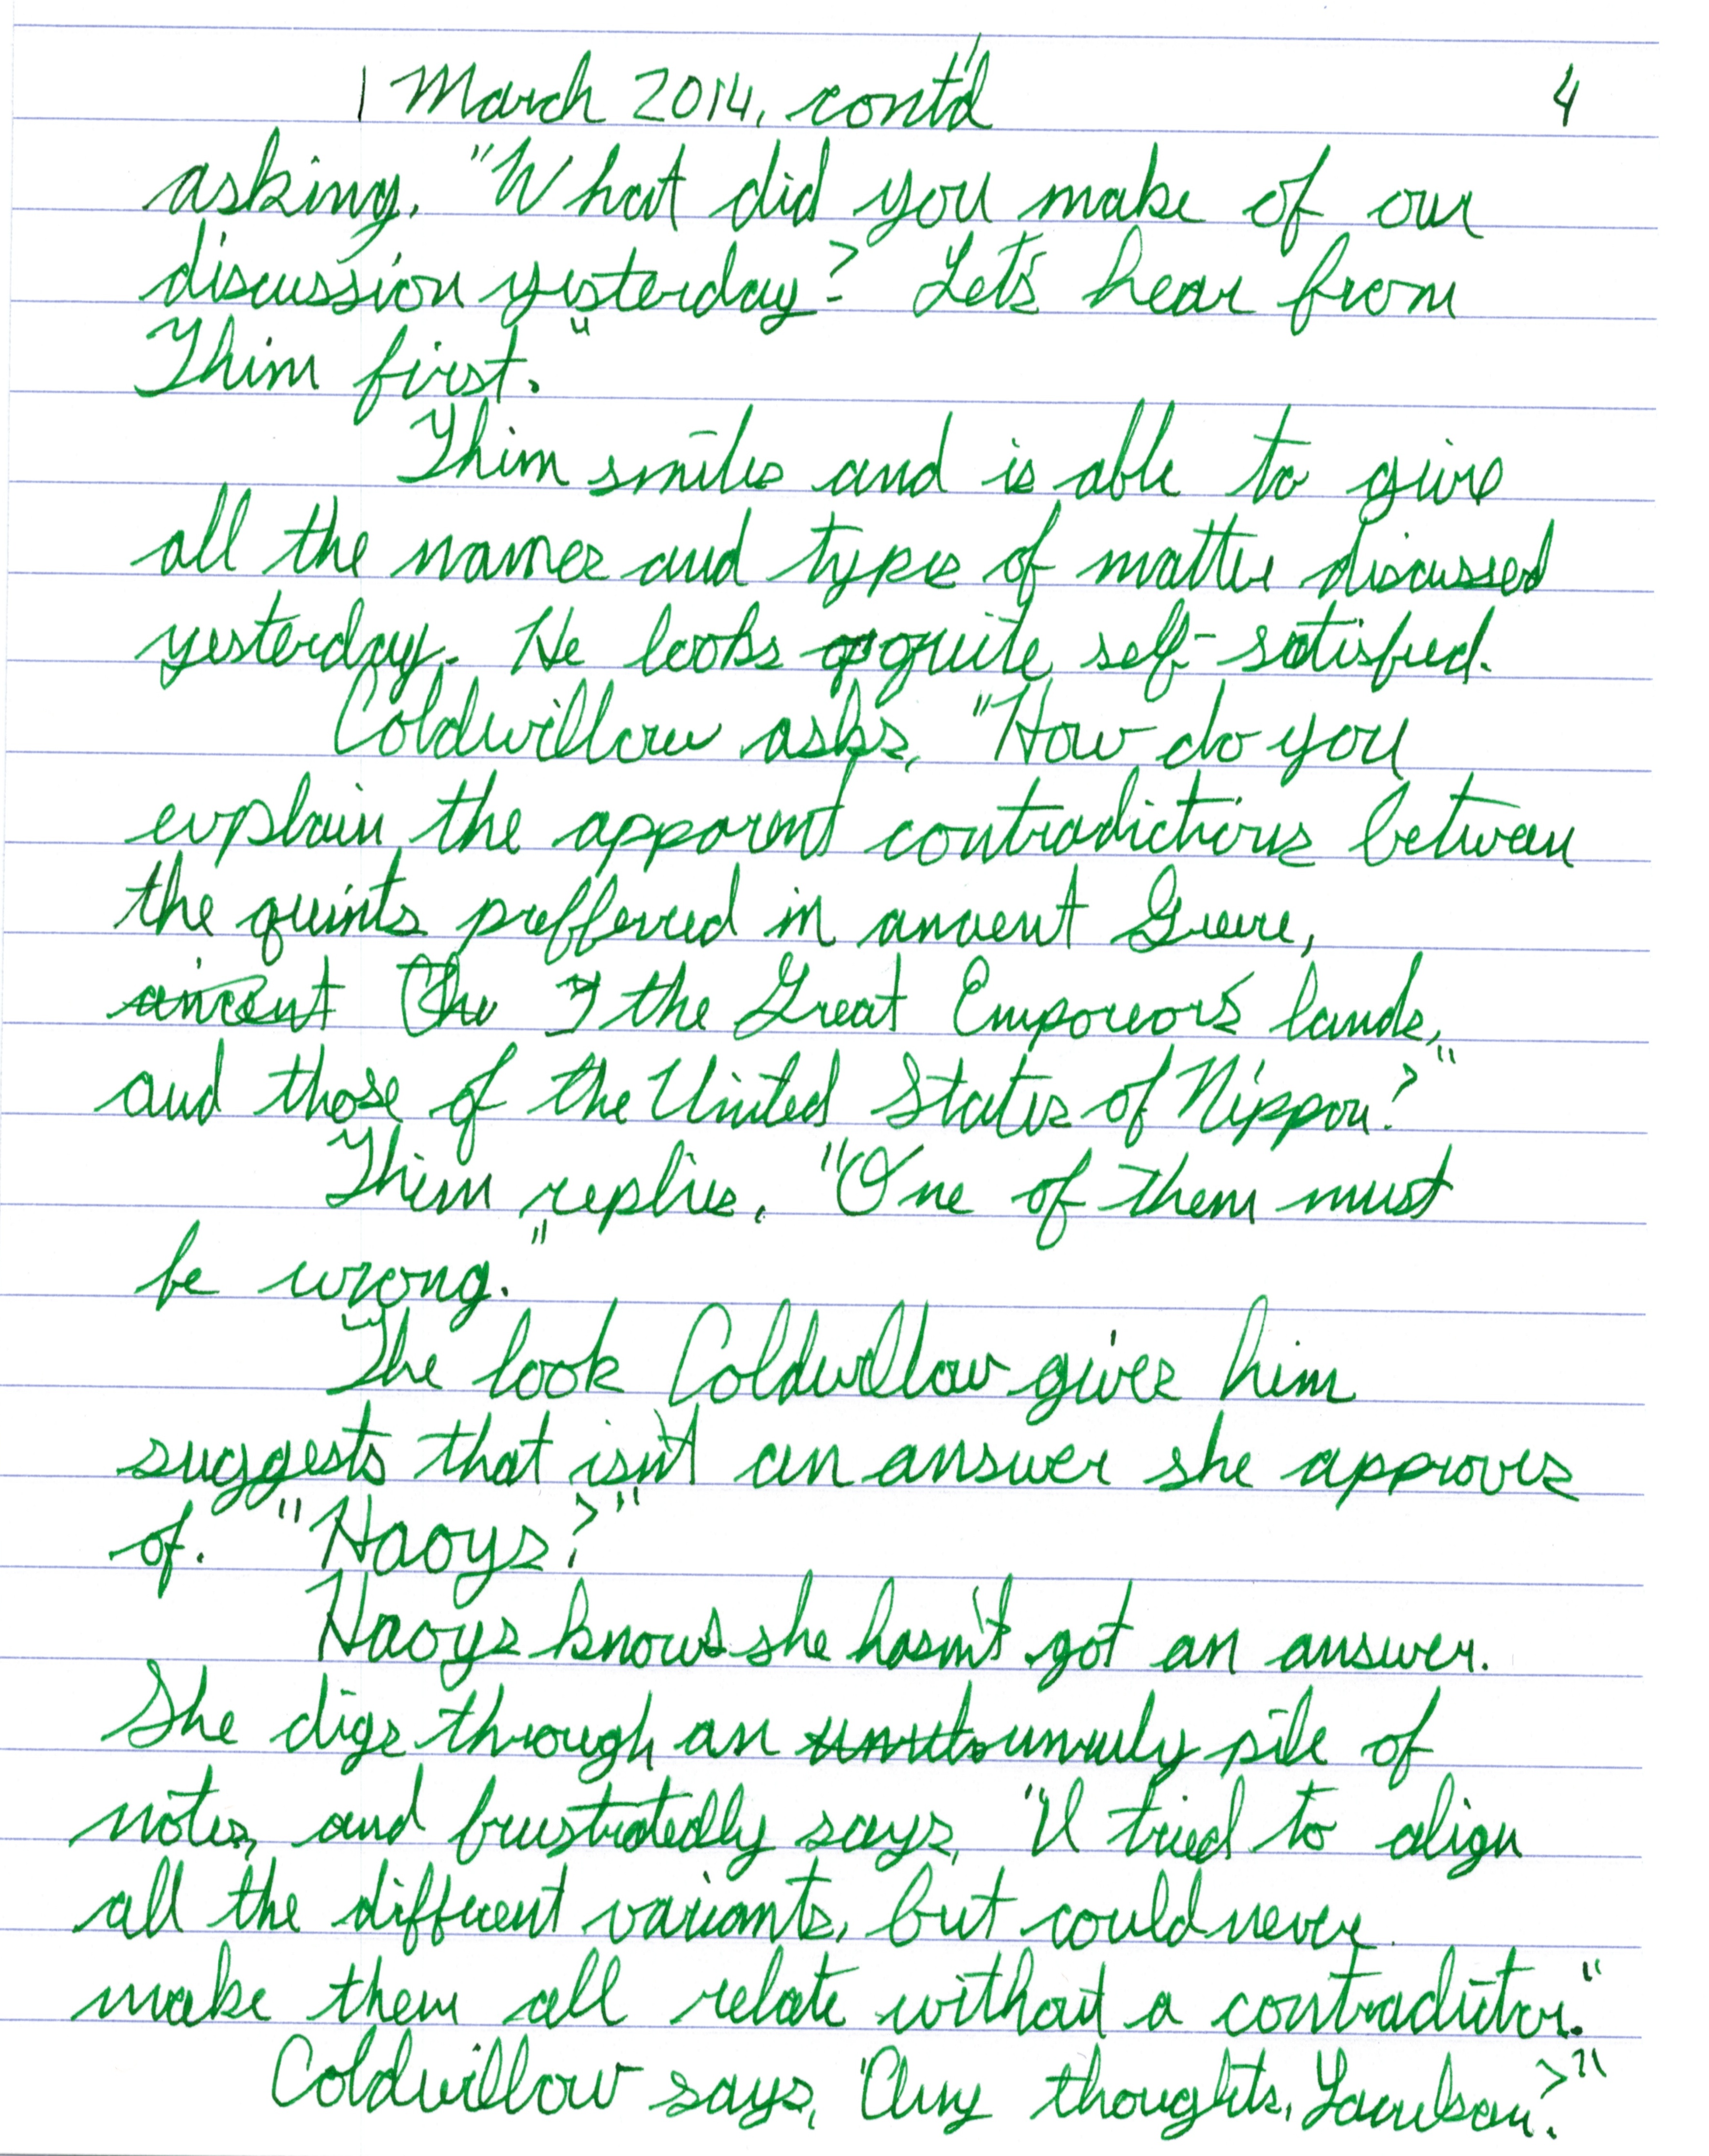 1 March 2014, cont'd 4
asking, "What did you make of our
discussion yesterday? Let's hear from
Thim first."
Thim smiles and is able to give
all the names and types of matter discussed
yesterday. He looks quite self-satisfied.
Coldwillow asks, "How do you
explain the apparent contradictions between
the quints prefferred in ancient Greece,
the Great Emporeor's lands,
and those of the United States of Nippon?"
Thim replies, "One of them must
be wrong."
The look Coldwillow gives him
suggests that isn't an answer she approves
of. "Haoys?"
Haoys knows she hasn't got an answer.
She digs through an unruly pile of
notes, and frustratedly says, "I tried to align
all the different variants, but could never
make them all relate without a contradiction."
Coldwillow says, "Any thoughts,